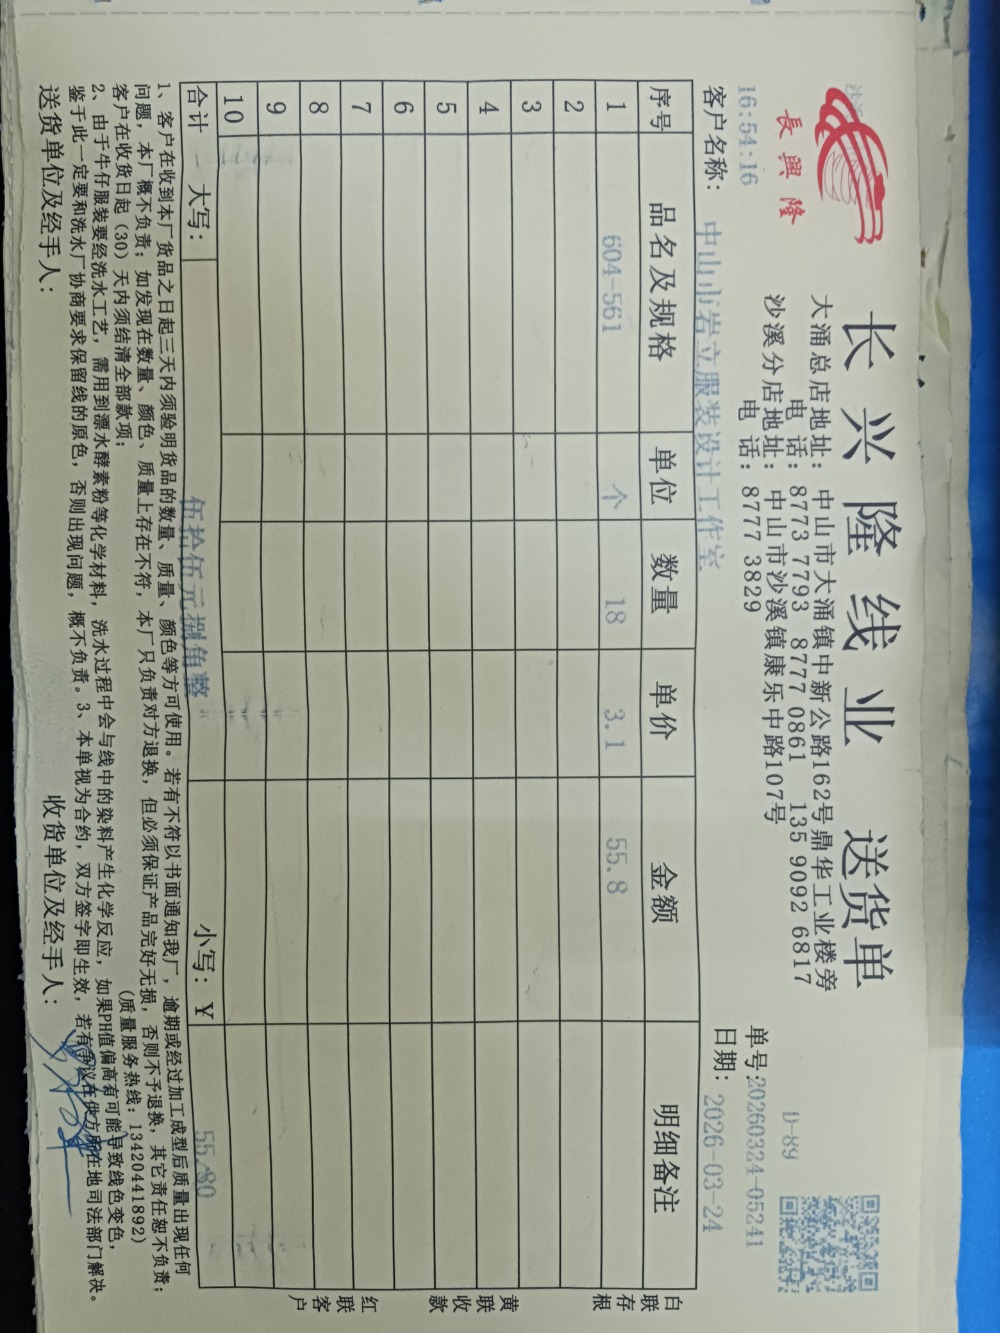 長興隆
长兴隆线业 送货单
D-89
大涌总店地址：中山市大涌镇中新公路162号鼎华工业楼旁
电 话：8773 7793 8777 0861 135 9092 6817
沙溪分店地址：中山市沙溪镇康乐中路107号
电 话：8777 3829
16:54:16
单号:20260324-05241
客户名称：中山市岩立服装设计工作室
日期：2026-03-24
序号 品名及规格 单位 数量 单价 金额 明细备注
1 604-561 个 18 3.1 55.8
2
3
4
5
6
7
8
9
10
合计 大写：伍拾伍元捌角整 小写：¥ 55.80
白联存根
黄联收款
红联客户
1、客户在收到本厂货品之日起三天内须验明货品的数量、质量、颜色等方可使用。若有不符以书面通知我厂，逾期或经过加工成型后质量出现任何
问题，本厂概不负责；如发现在数量、颜色、质量上存在不符，本厂只负责对方退换，但必须保证产品完好无损，否则不予退换，其它责任恕不负责；
客户在收货日起（30）天内须结清全部款项； (质量服务热线：13420441892)
2、由于牛仔服装要经洗水工艺，需用到漂水酵素粉等化学材料，洗水过程中会与线中的染料产生化学反应，如果PH值偏高有可能导致线色变色，
鉴于此一定要和洗水厂协商要求保留线的原色，否则出现问题，概不负责。3、本单视为合约，双方签字即生效，若有争议在供方所在地司法部门解决。
送货单位及经手人： 收货单位及经手人：